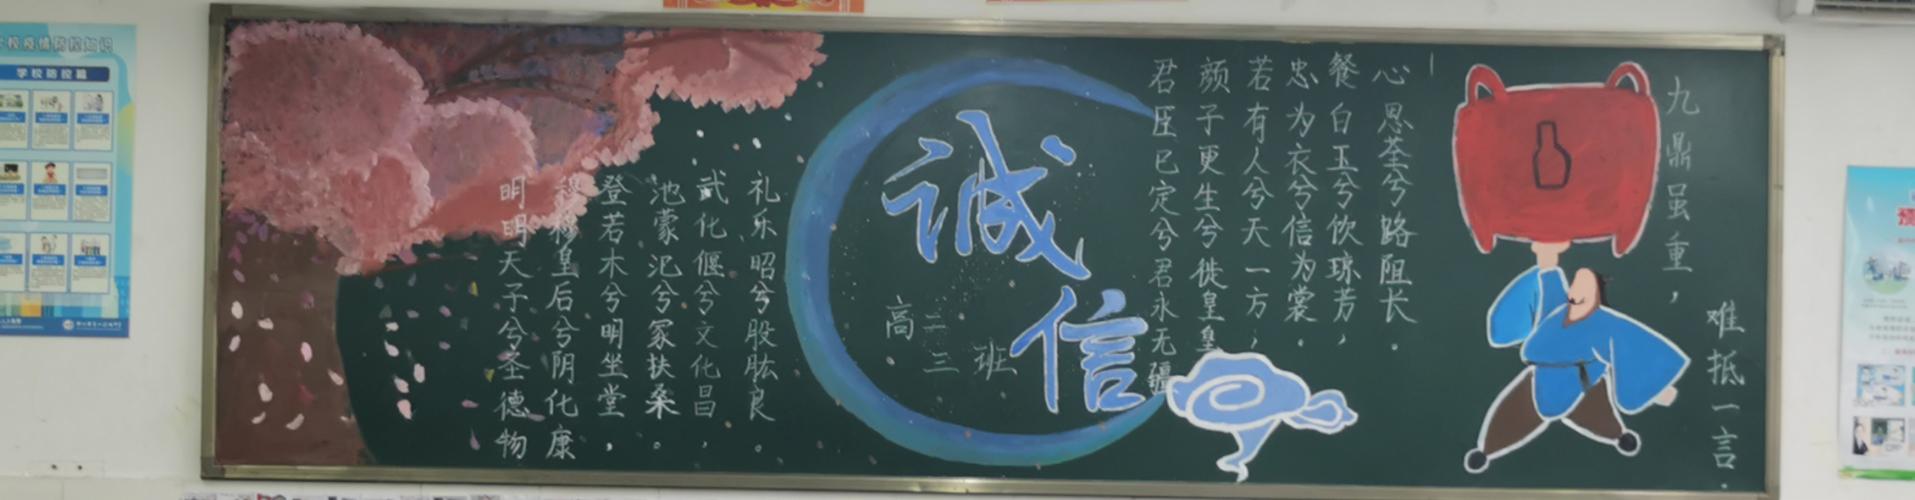 学校疫情防控知识
学校防控篇
九鼎虽重，
难抵一言.
心思荃兮路阻长.
餐白玉兮饮琼芳，
忠为衣兮信为裳.
若有人兮天一方；
颜子更生兮徙皇皇
君臣已定兮君永无疆
诚信
高二三班
礼乐昭兮股肱良。
武化偃兮文化昌，
池蒙汜兮家扶桑。
登若木兮明坐堂，
穆穆皇后兮阴化康
明明天子兮圣德物